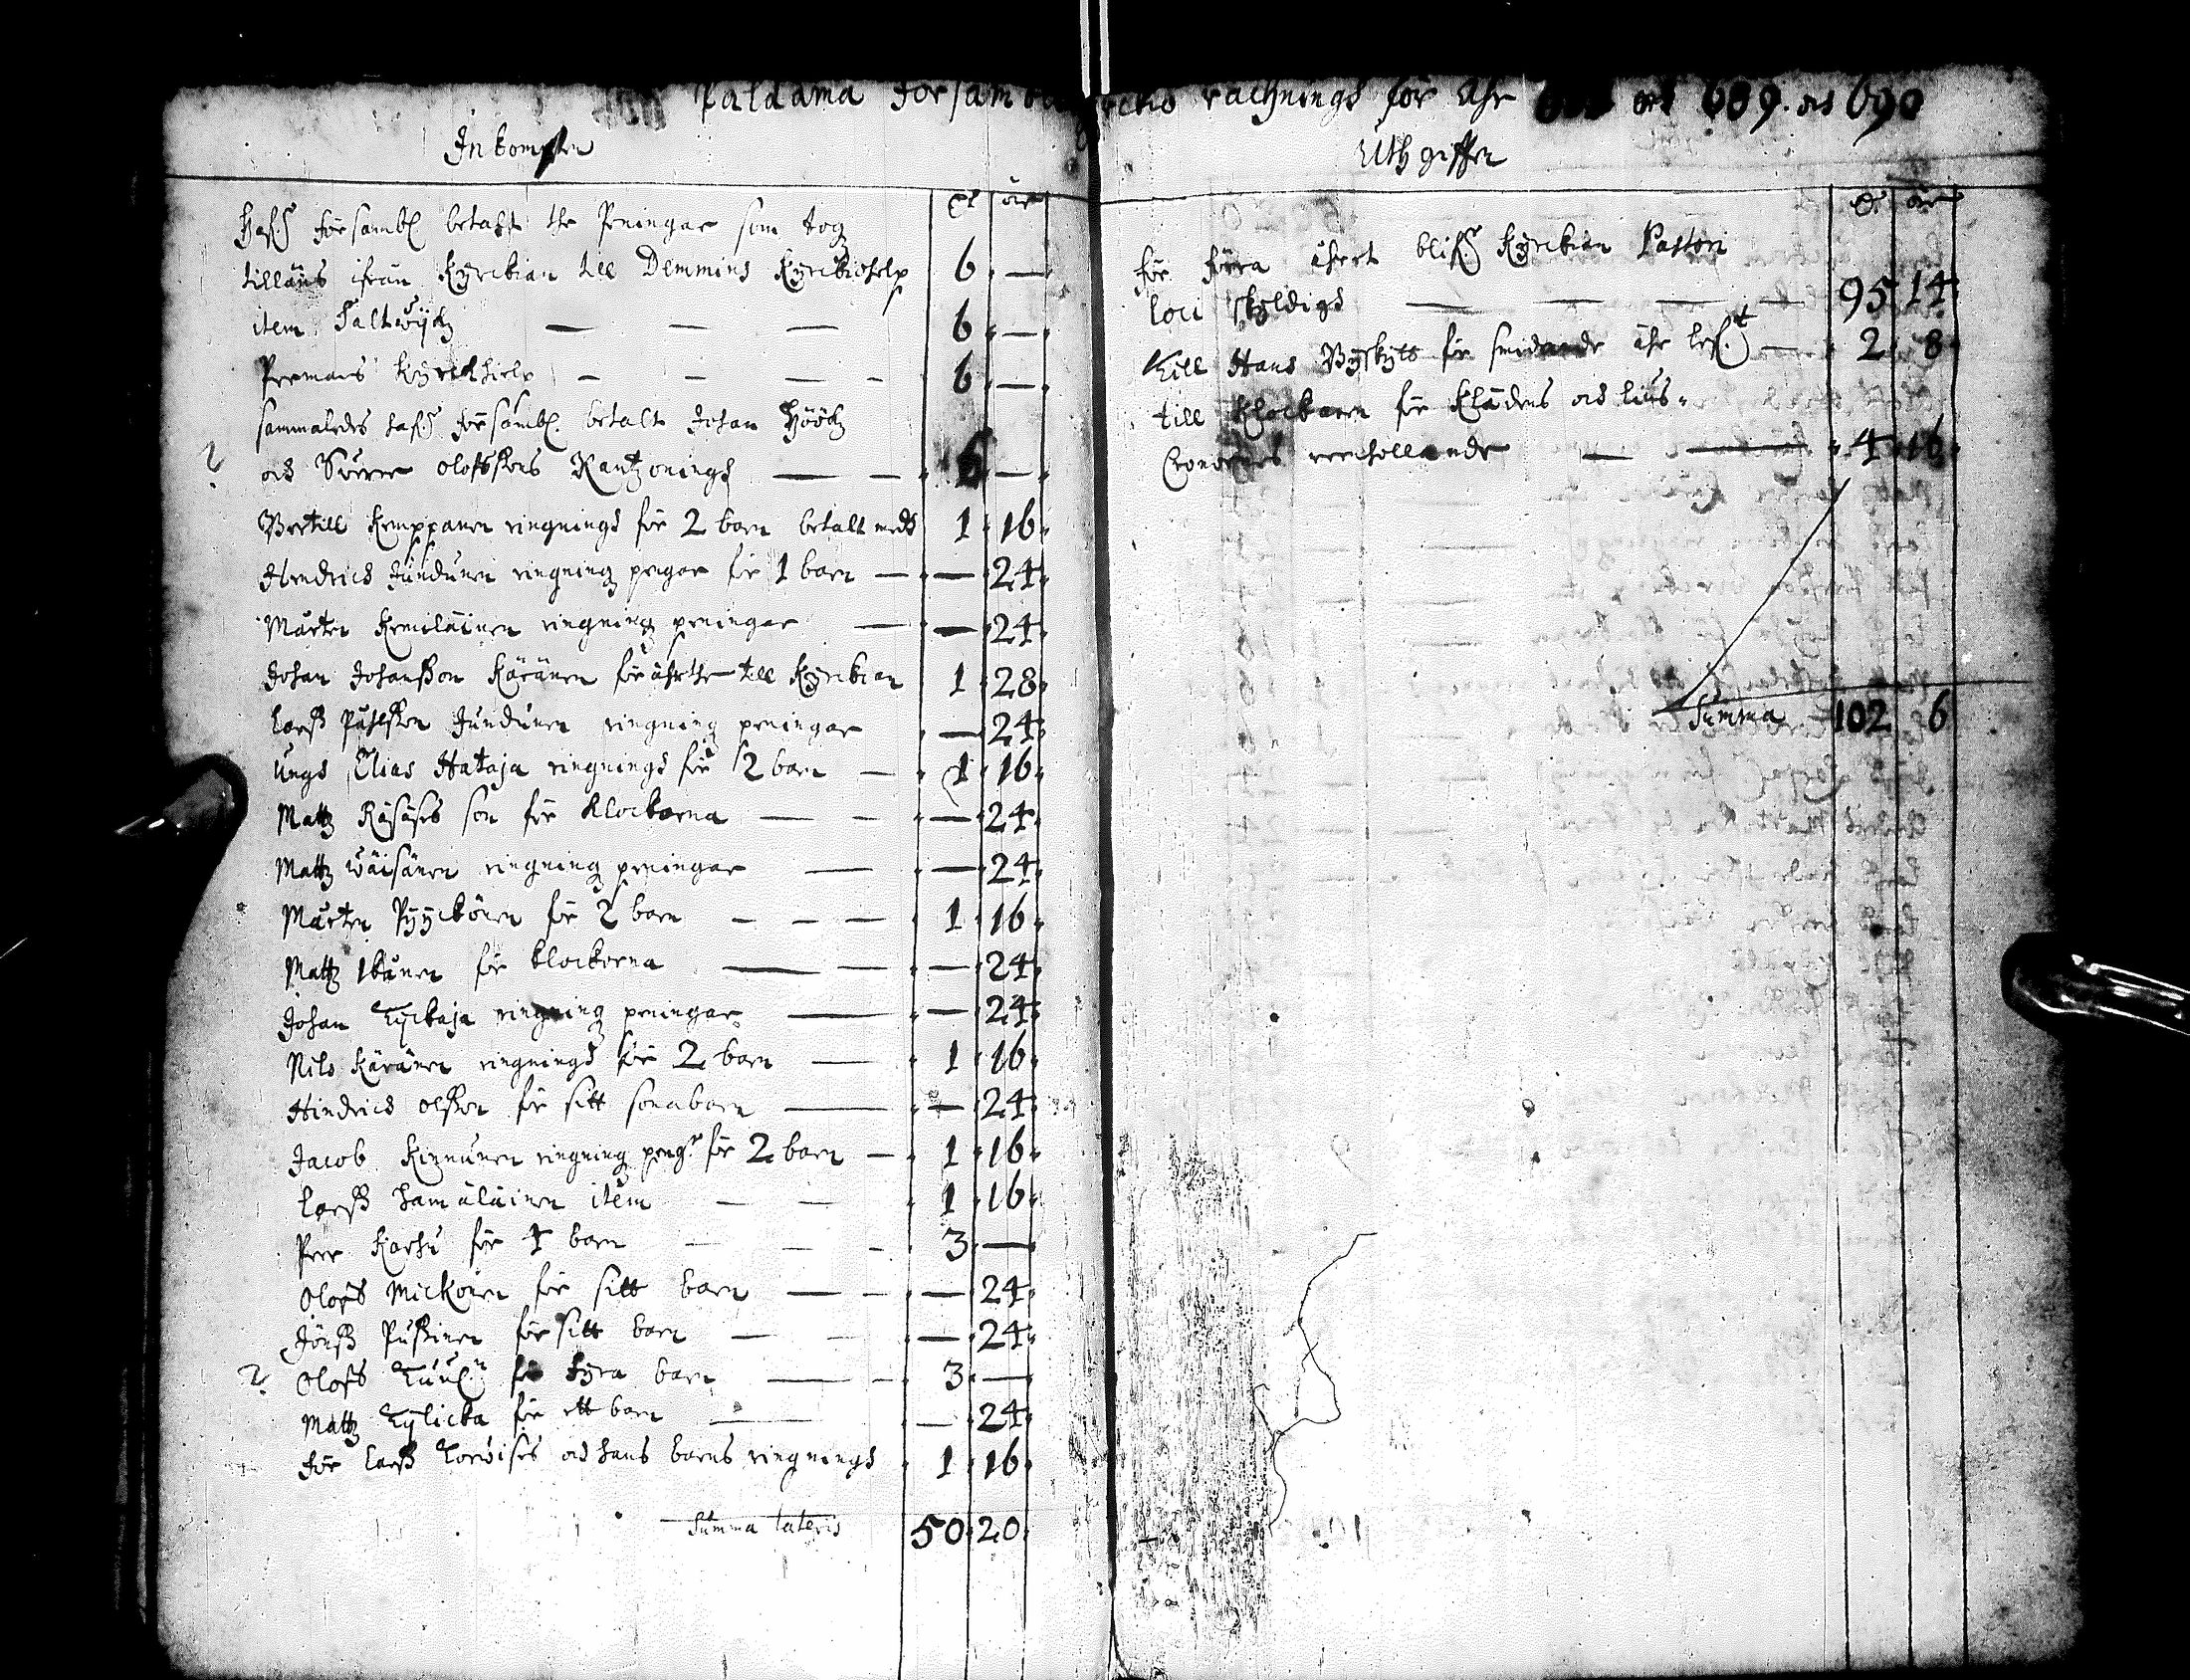 Paldama Försambl räcknings för Ahr 689. och 690
Inkompsten
Dr öre
Hafr Försambl betalt the Peningar som tog
tilläns ifrån Kyrckian till Demmins Kyrckiohelp 6. —
item Saltwijckz — — — 6. —
Permaus Kyrckhielp — — — 6. —
sammaledes hafr Försambl. betalt Johan Höökz
? och Swerre Olofssons Rantzonings — — 6 —
Bertill Kemppanen ringnings för 2 barn betalt medh 1. 16.
Hendrich Jundunen ringningz pengar för 1 barn — — 24.
Mårten Kemiläinen ringningz peningar — — 24.
Johan Johansson Käränen förährthe till Kyrckian 1. 28.
Larss Påhlsson Jundunen ringning peningar — 24.
Ungh Elias Hataja ringnings för 2 barn — 1. 16.
Mattz Räsäses son för Klockorna — — — 24.
Mattz Wäisänen ringningz peningar — — 24.
Mårten Pyyckönen för 2 barn — — — 1. 16.
Mattz Ikänen för klockorna — — — 24.
Johan Tyckaja ringningz peningar — — 24.
Nils Käränen ringnings för 2 barn — 1. 16.
Hindrich Olsson för sitt sonabarn — — 24.
Jacob Kinnunen ringningz pengr för 2 barn — 1. 16.
Larss Hamäläinen item — — 1. 16.
Peer Karhu för 4 barn — — — 3. —
Olof Mickonen för sitt barn — — — 24.
Jönss Pussinen för sitt barn — — — 24.
? Olof för fyra barn — — 3. —
Mattz Tylicka för ett barn — — 24.
För Larss Torwises och hans barns ringnings 1. 16.
Summa lateris 50. 20.
Uthgifften
Dr öre
för förra åhret blifr Kyrckian Pastori
loci skyldigh — — — — 95. 14.
till Hans för smidande — 2. 8.
till Klockaren för Klädens och lius-
Cronornes reenhollande — — 4. 16.
Summa 102 6